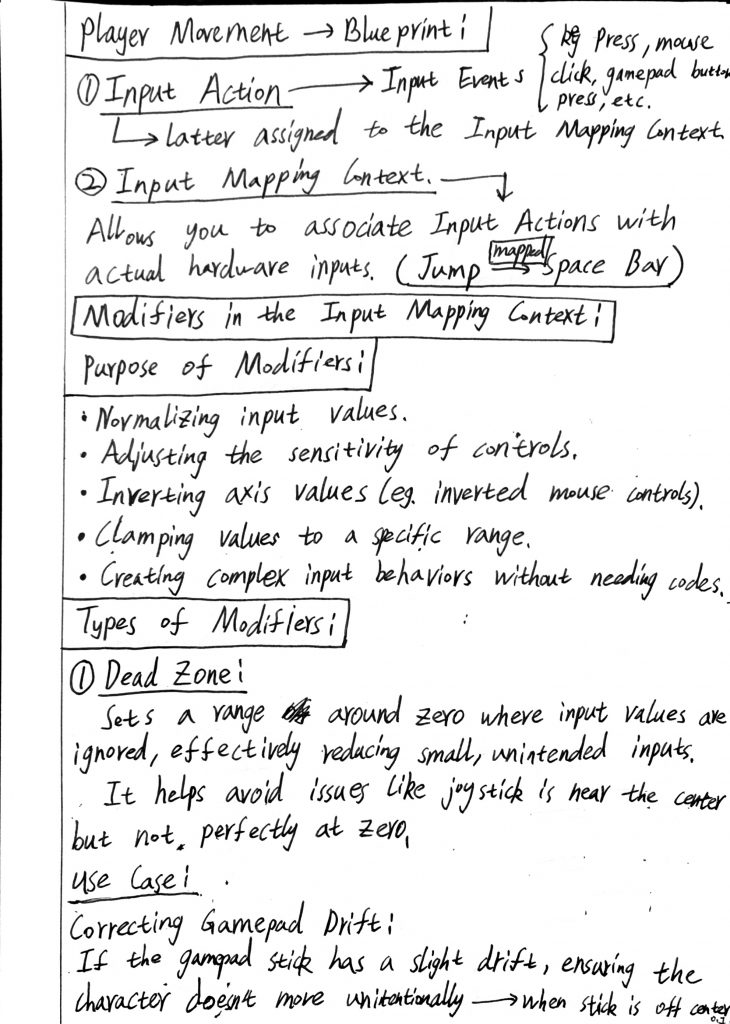 Player Movement → Blueprint:
key Press, mouse
click, gamepad button
press, etc.
① Input Action → Input Events
↳ Latter assigned to the Input Mapping Context.
② Input Mapping Context.
Allows you to associate Input Actions with
actual hardware inputs. (Jump mapped→ Space Bar)
Modifiers in the Input Mapping Context:
Purpose of Modifiers:
• Normalizing input values.
• Adjusting the sensitivity of controls.
• Inverting axis values (eg. inverted mouse controls).
• Clamping values to a specific range.
• Creating complex input behaviors without needing codes.
Types of Modifiers:
① Dead Zone:
Sets a range around zero where input values are
ignored, effectively reducing small, unintended inputs.
It helps avoid issues like joystick is near the center
but not perfectly at zero.
Use Case:
Correcting Gamepad Drift:
If the gamepad stick has a slight drift, ensuring the
character doesn't move unitentionally → when stick is off center